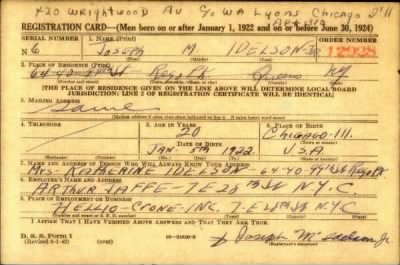 420 Wrightwood Av c/o WA Lyons Chicago Ill
REGISTRATION CARD—(Men born on or after January 1, 1922 and on or before June 30, 1924)
SERIAL NUMBER 1. NAME (Print) ORDER NUMBER
N 6 JOSEPH M IDELSON Jr 12928
(First) (Middle) (Last)
2. PLACE OF RESIDENCE (Print)
64-40 Rego Pk Queens NY
(Number and street) (Town, township, village, or city) (County) (State)
[THE PLACE OF RESIDENCE GIVEN ON THE LINE ABOVE WILL DETERMINE LOCAL BOARD
JURISDICTION; LINE 2 OF REGISTRATION CERTIFICATE WILL BE IDENTICAL]
3. MAILING ADDRESS
Same
(Mailing address if other than place indicated on line 2. If same insert word same)
4. TELEPHONE 5. AGE IN YEARS 6. PLACE OF BIRTH
20 CHICAGO-ILL.
DATE OF BIRTH (Town or county)
JAN. 5TH 1922. U.S.A
(Exchange) (Number) (Mo.) (Day) (Yr.) (State or country)
7. NAME AND ADDRESS OF PERSON WHO WILL ALWAYS KNOW YOUR ADDRESS
MRS. KATHERINE IDELSON 64-40 Rego Pk
8. EMPLOYER'S NAME AND ADDRESS
ARTHUR JAFFE - 7 E 28TH ST N.Y.C.
9. PLACE OF EMPLOYMENT OR BUSINESS
INC. 7-E 28TH ST N.Y.C
(Number and street or R. F. D. number) (Town) (County) (State)
I AFFIRM THAT I HAVE VERIFIED ABOVE ANSWERS AND THAT THEY ARE TRUE.
D. S. S. Form 1
(Revised 6-1-42) (over) Joseph M Idelson Jr.
(Registrant's signature)